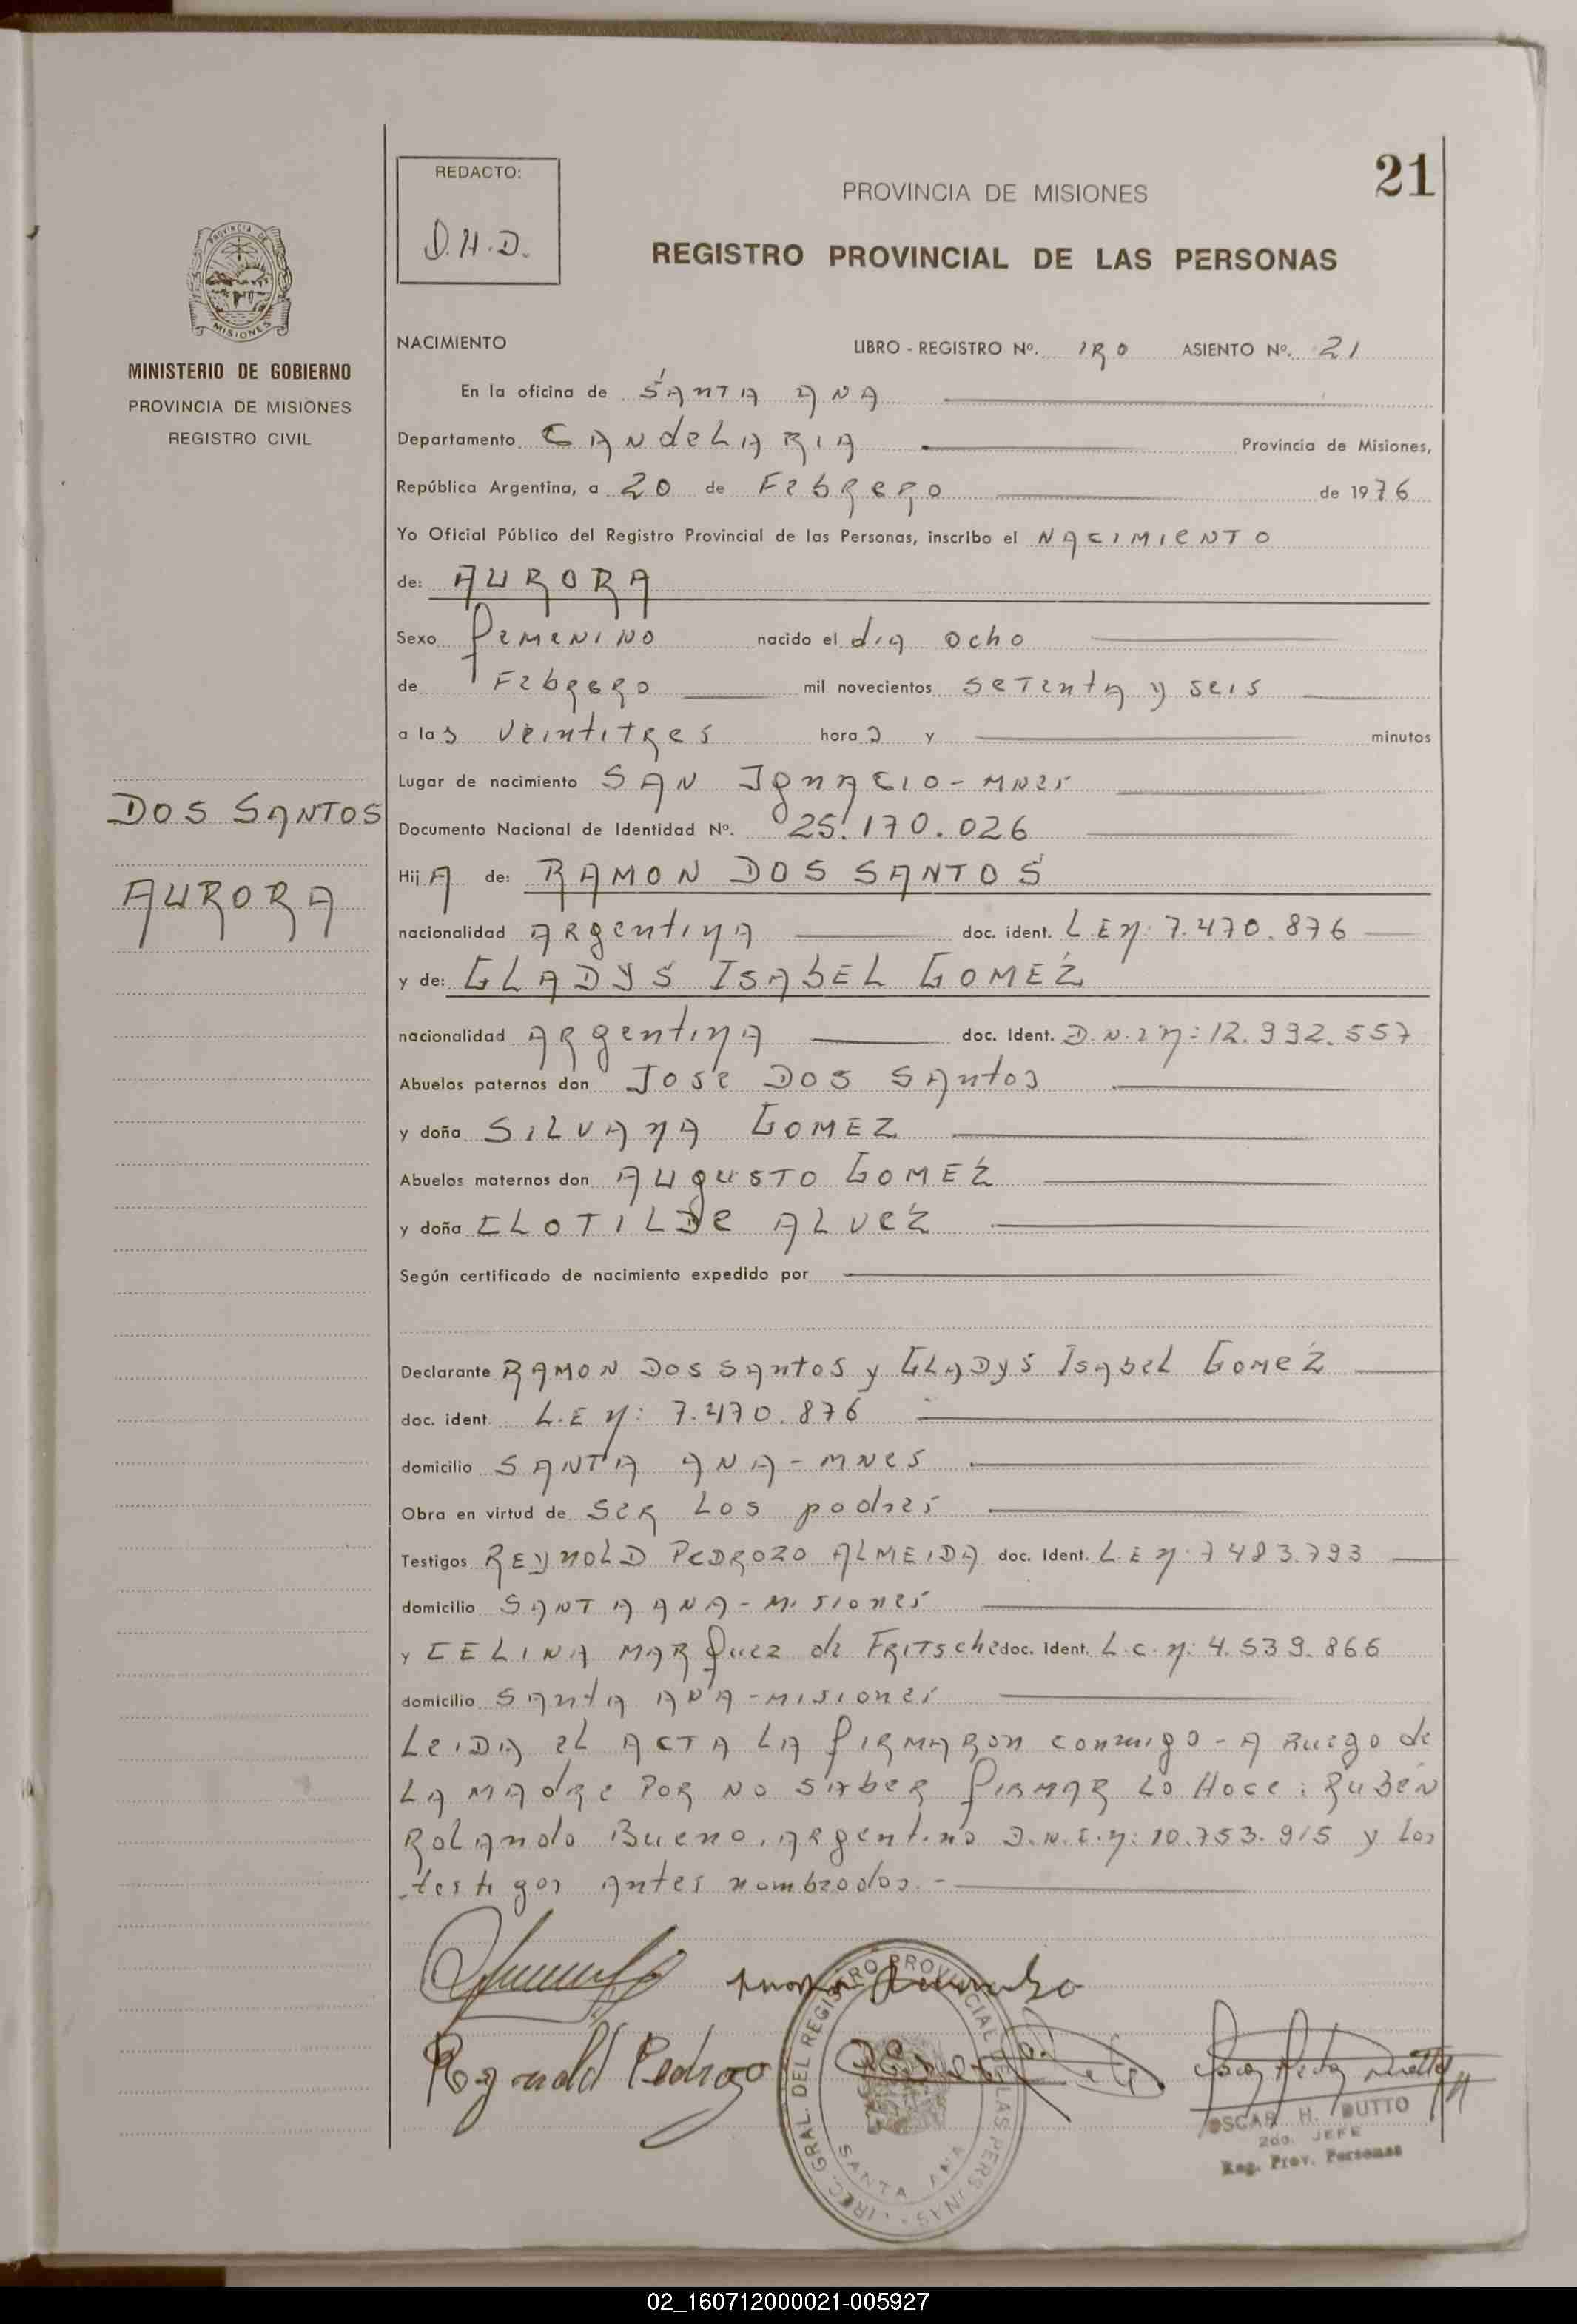 21
REDACTO:
D.H.D.
PROVINCIA DE MISIONES
REGISTRO PROVINCIAL DE LAS PERSONAS
PROVINCIA DE
MISIONES
MINISTERIO DE GOBIERNO
PROVINCIA DE MISIONES
REGISTRO CIVIL
DOS SANTOS
AURORA
NACIMIENTO LIBRO - REGISTRO Nº. 1RO ASIENTO Nº. 21
En la oficina de SANTA ANA
Departamento CANdeLARIA Provincia de Misiones,
República Argentina, a 20 de FebReRo de 1976
Yo Oficial Público del Registro Provincial de las Personas, inscribo el NACIMIeNTO
de: AURORA
Sexo femeNINO nacido el dia ocho
de FebReRo mil novecientos seTenta y seis
a las veintitRes horas y minutos
Lugar de nacimiento SAN IgnACIO - MNes
Documento Nacional de Identidad Nº. 25.170.026
HijA de: RAMON DOS SANTOS
nacionalidad ARgentinA doc. ident. L.E n: 7.470.876
y de: GLADYS ISAbEL GOMEZ
nacionalidad ARgentinA doc. Ident. D.N.I n: 12.992.557
Abuelos paternos don Jose DOS SAntos
y doña SILVAnA GOMEZ
Abuelos maternos don AUgUSTO GOMEZ
y doña CLOTILDe ALVeZ
Según certificado de nacimiento expedido por
Declarante RAMON DOS SAntos y GLADyS ISAbeL GomeZ
doc. ident. L.E n: 7.470.876
domicilio SANTA ANA - MNes
Obra en virtud de SeR Los padres
Testigos REyNOLD PeDROZO ALMEIDA doc. Ident. L.E n: 7483.793
domicilio SANTA ANA - Misiones
y CELINA MARquez de FRITSche doc. Ident. L.C. n: 4.539.866
domicilio SAntA ANA - Misiones
LeIDA eL ACTA LA fIRMARon conmigo - A Ruego de
LA MAdRe POR NO SAbeR fIRMAR Lo Hace: Ruben
RoLAndo Bueno, ARgentino D.N.I. n: 10.753.915 y Los
testigos Antes nombrados. -
Reynold Pedrozo
DIREC. GRAL. DEL REGISTRO PROVINCIAL DE LAS PERSONAS
SANTA ANA
OSCAR H. DUTTO
2do. JEFE
Reg. Prov. Personas
02_160712000021-005927